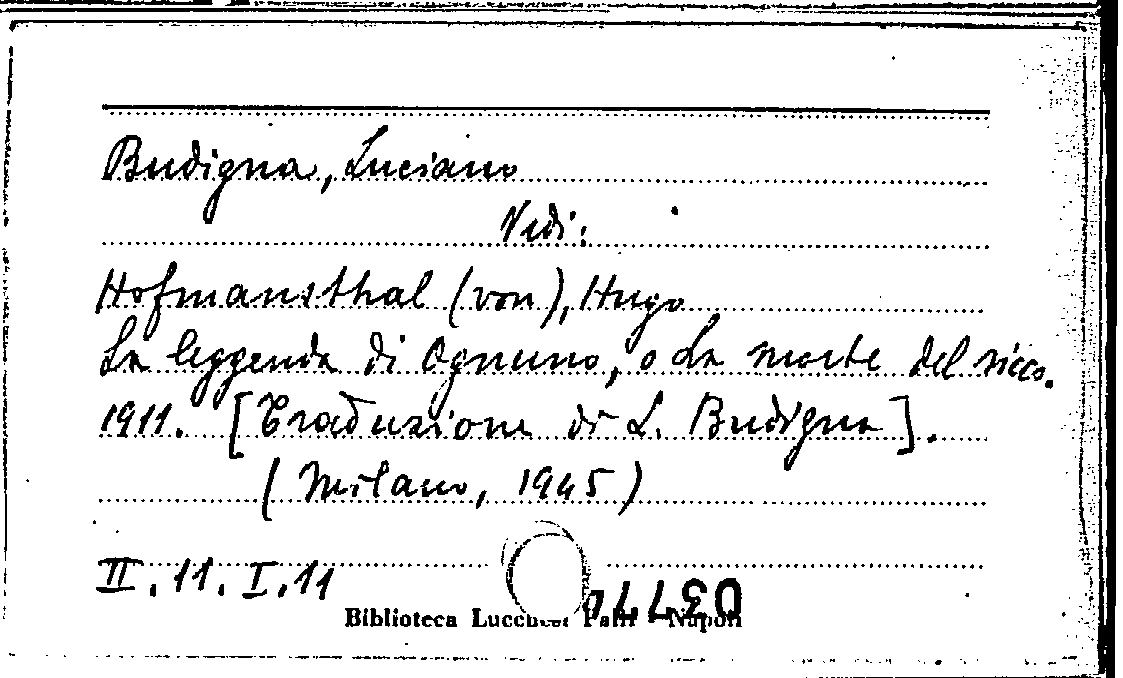 Budigna, Luciano
Vedi:
Hofmansthal (von), Hugo
La leggenda di Ognuno, o La morte del ricco.
1911. [Traduzione di L. Budigna].
(Milano, 1945)
II. 11. I. 11
Biblioteca Lucchesi Palli - Napoli